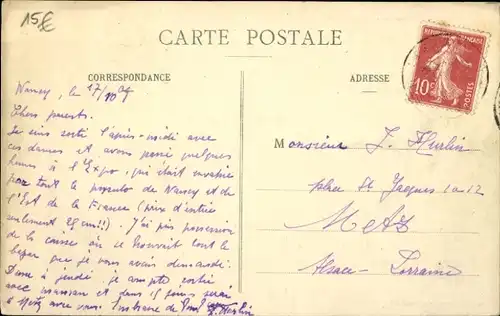 15€
CARTE POSTALE
CORRESPONDANCE
ADRESSE
RÉPUBLIQUE FRANÇAISE
10c
POSTES
Nancy, le 17/10 09
Chers parents.
Je suis sorti l'après-midi avec
ces dames et avons passé quelques
heures à l'Expo, qui était envahie
par tout le populo de Nancy et de
l'Est de la France (prix d'entrée
seulement 25 cm!!) J'ai pris possession
de la caisse où se trouvait tout le
que je vous avais demandé.
Donc à jeudi, je compte
avec maman et dans 15 jours serai
à Metz avec vous.
Monsieur J. Hurlin
place St Jacques 10-12
Metz
Alsace-Lorraine